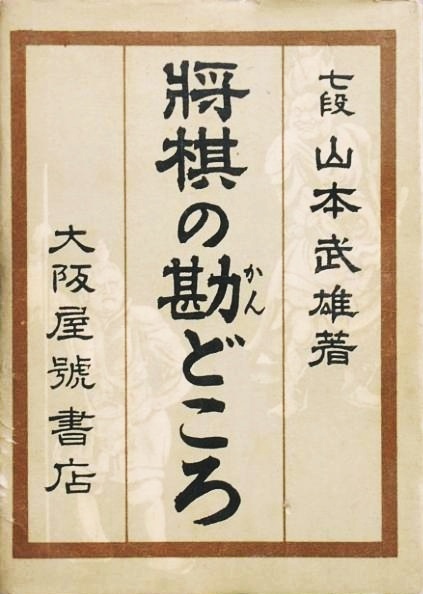 七段 山本武雄著
將棋の勘どころ
かん
大阪屋號書店